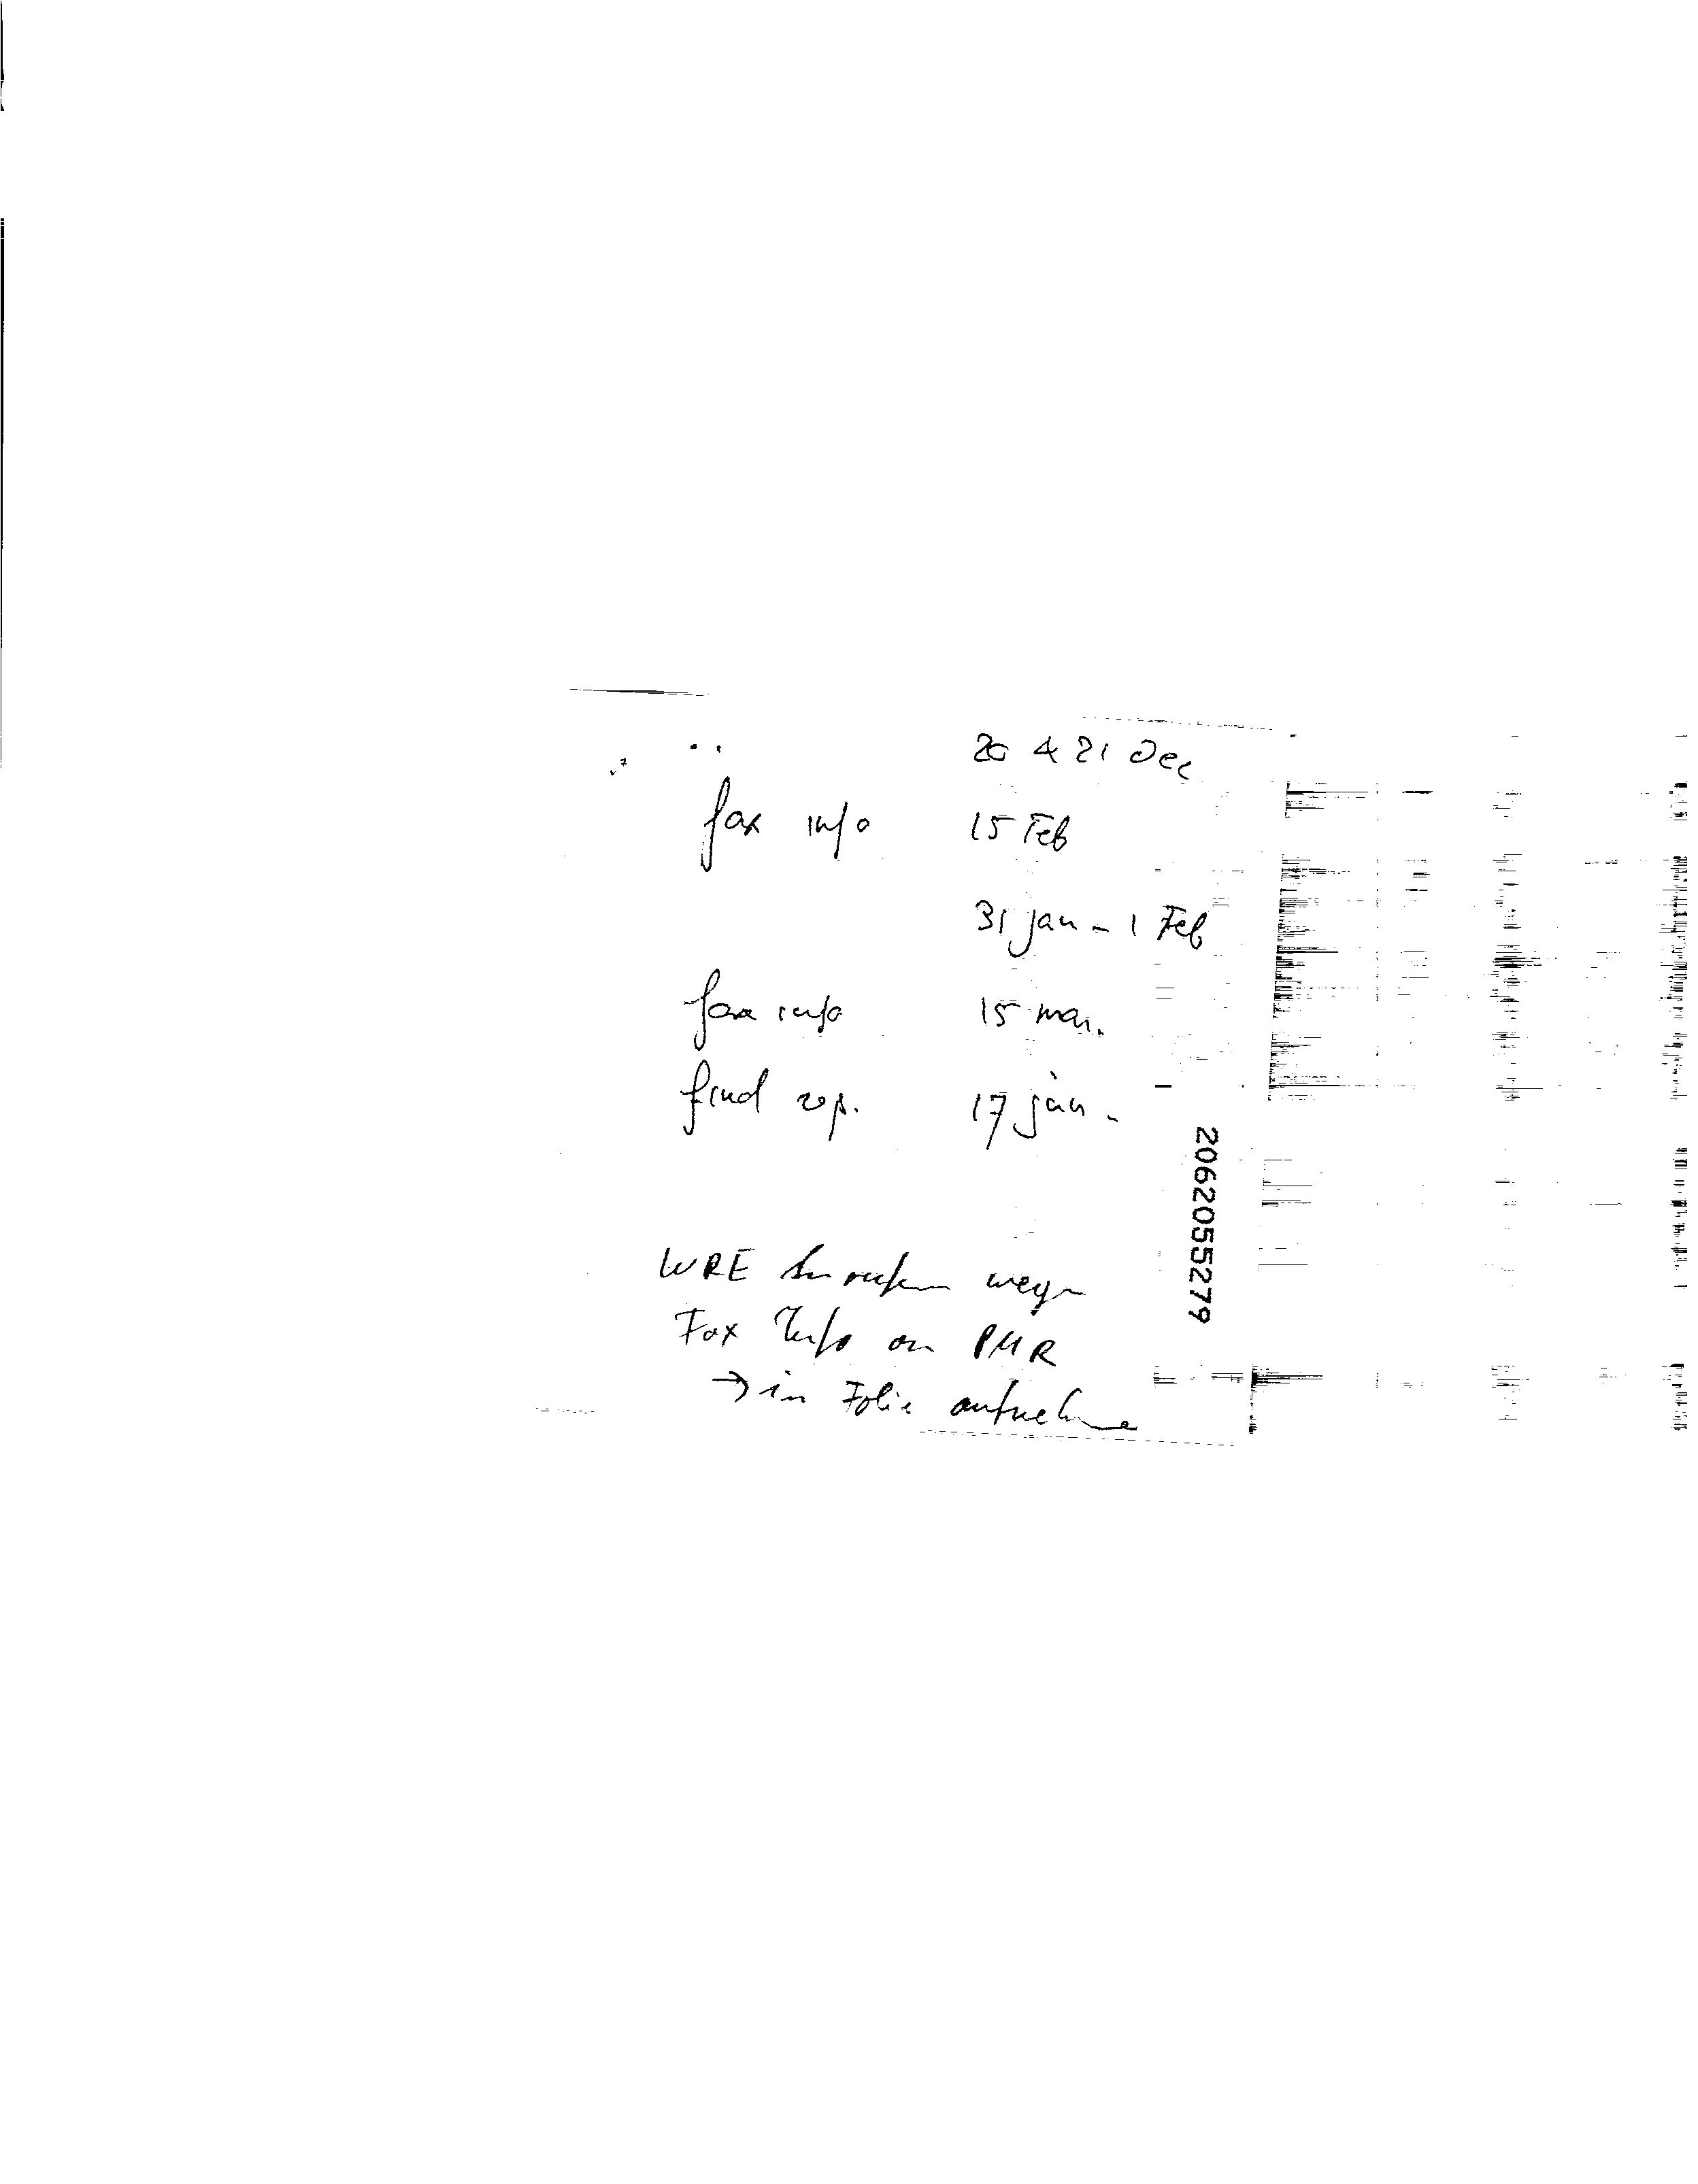 20 & 21 Dec
fax info 15 Feb
31 jan - 1 Feb
fax info 15 mar.
final rep. 17 jan.
2062055279
WRE anrufen wegen
Fax Info an PMR
→ in Folie aufnehmen